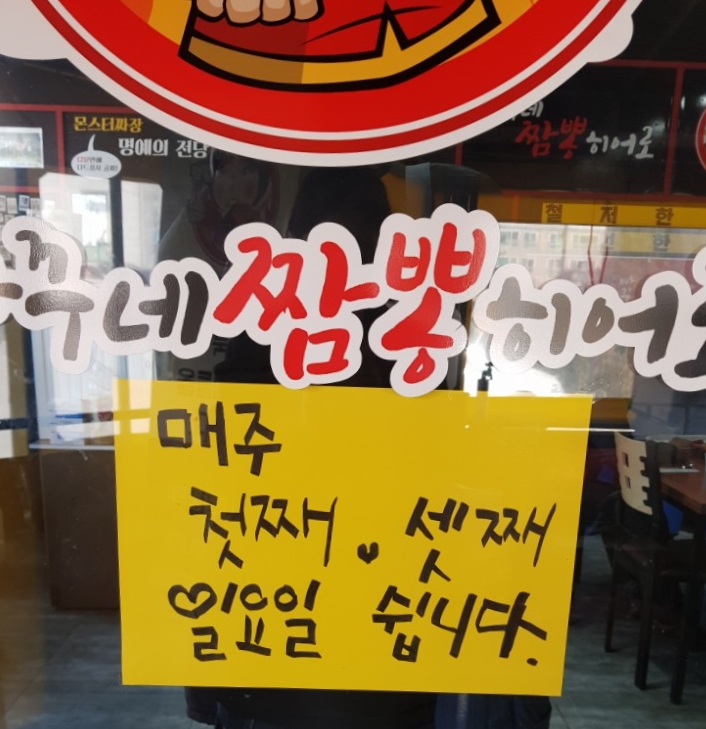 몬스터짜장
명예의 전당
짬뽕히어로
철 저 한
꾸네짬뽕히어로
매주
첫째 셋째
일요일 쉽니다.